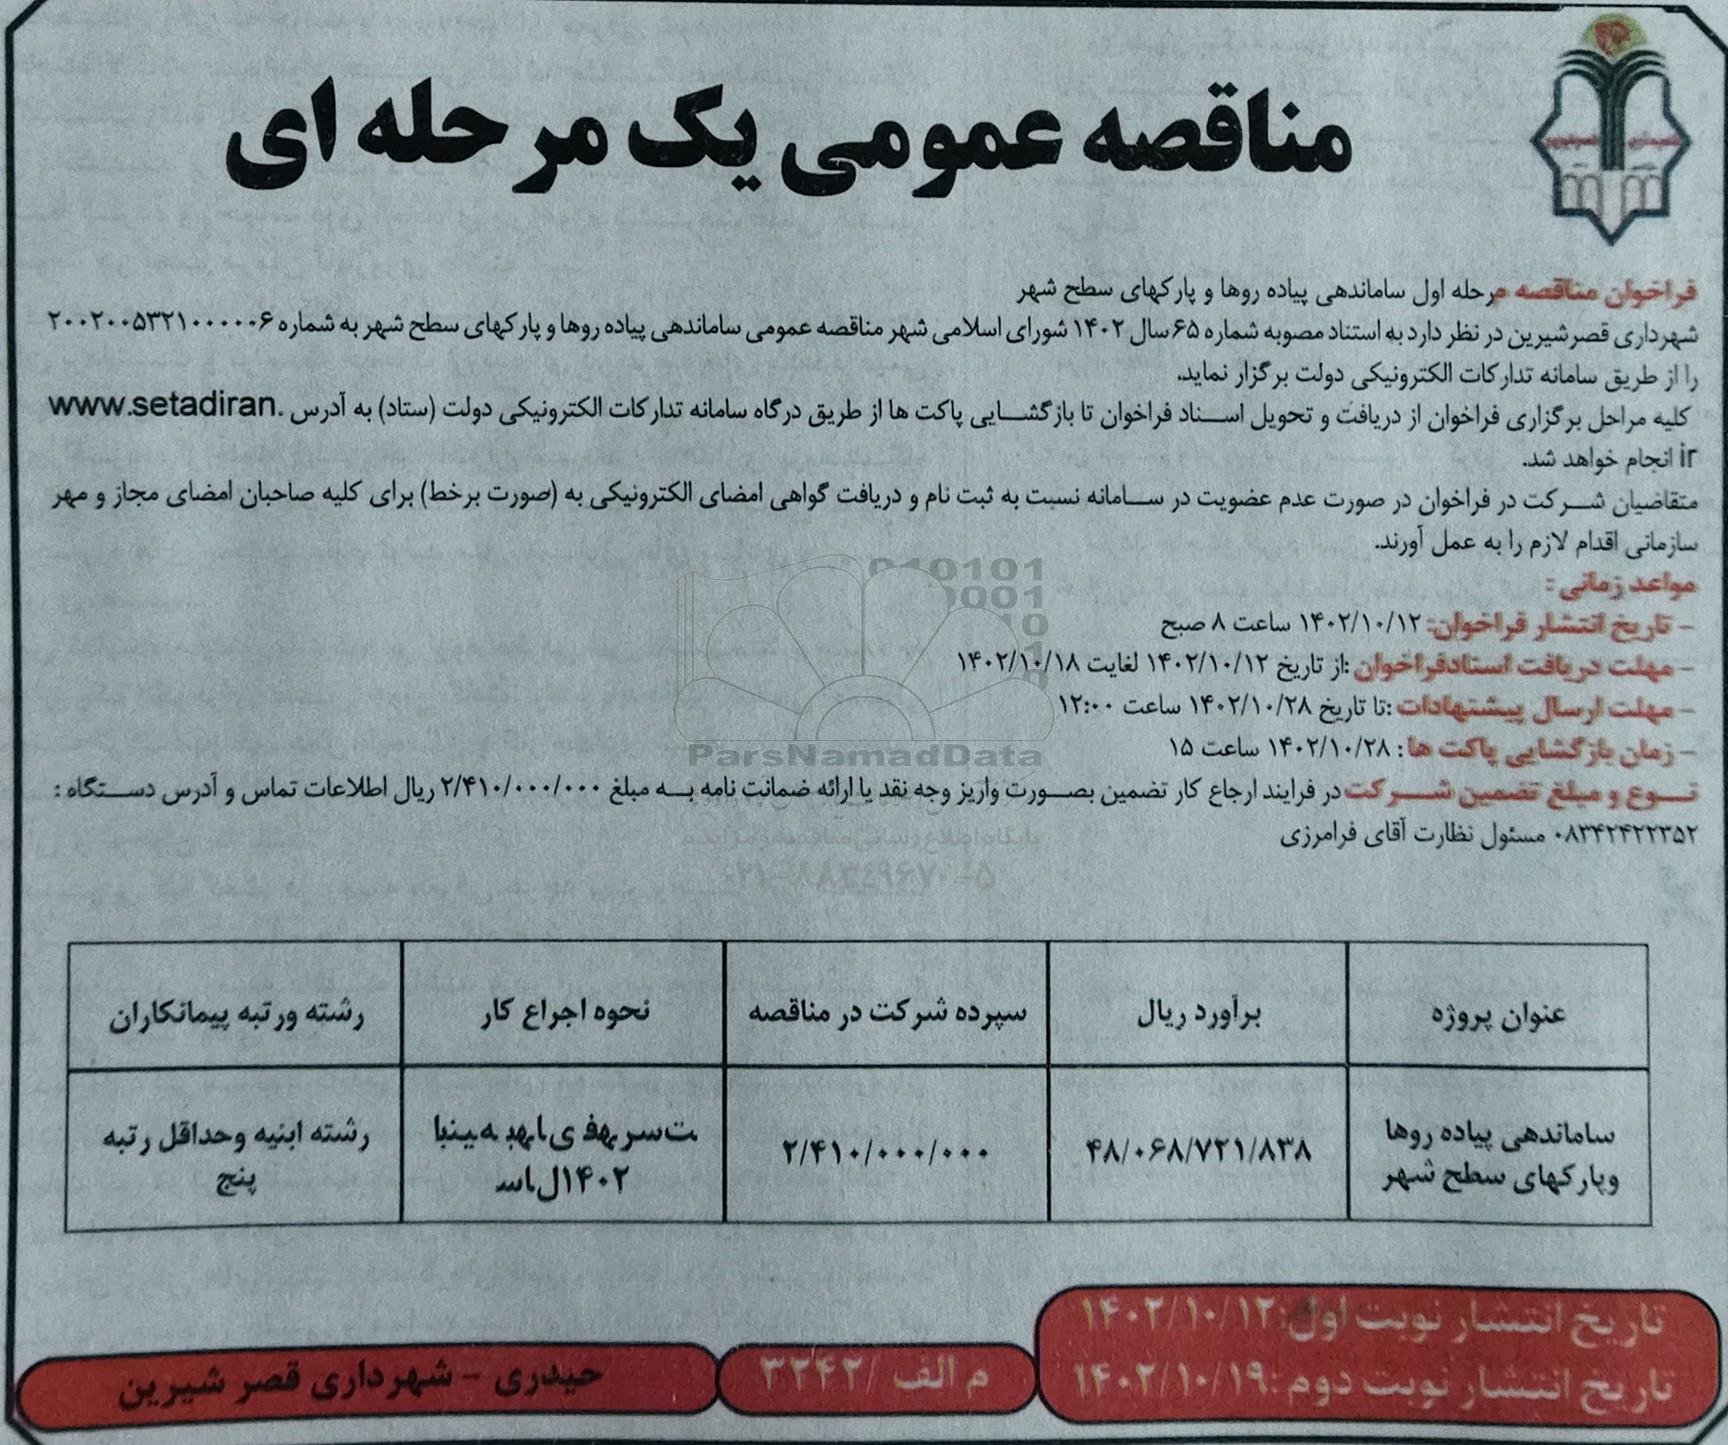 مناقصه عمومی یک مرحله ای
فراخوان مناقصه مرحله اول ساماندهی پیاده روها و پارکهای سطح شهر
شهرداری قصرشیرین در نظر دارد به استناد مصوبه شماره ۶۵ سال ۱۴۰۲ شورای اسلامی شهر مناقصه عمومی ساماندهی پیاده روها و پارکهای سطح شهر به شماره ۲۰۰۲۰۰۵۳۲۱۰۰۰۰۰۶
را از طریق سامانه تدارکات الکترونیکی دولت برگزار نماید.
کلیه مراحل برگزاری فراخوان از دریافت و تحویل اسناد فراخوان تا بازگشایی پاکت ها از طریق درگاه سامانه تدارکات الکترونیکی دولت (ستاد) به آدرس www.setadiran.
ir انجام خواهد شد.
متقاضیان شرکت در فراخوان در صورت عدم عضویت در سامانه نسبت به ثبت نام و دریافت گواهی امضای الکترونیکی به (صورت برخط) برای کلیه صاحبان امضای مجاز و مهر
سازمانی اقدام لازم را به عمل آورند.
مواعد زمانی :
- تاریخ انتشار فراخوان: ۱۴۰۲/۱۰/۱۲ ساعت ۸ صبح
- مهلت دریافت اسنادفراخوان :از تاریخ ۱۴۰۲/۱۰/۱۲ لغایت ۱۴۰۲/۱۰/۱۸
- مهلت ارسال پیشنهادات :تا تاریخ ۱۴۰۲/۱۰/۲۸ ساعت ۱۲:۰۰
- زمان بازگشایی پاکت ها : ۱۴۰۲/۱۰/۲۸ ساعت ۱۵
نوع و مبلغ تضمین شرکت در فرایند ارجاع کار تضمین بصورت واریز وجه نقد یا ارائه ضمانت نامه به مبلغ ۲/۴۱۰/۰۰۰/۰۰۰ ریال اطلاعات تماس و آدرس دستگاه :
۰۸۳۴۲۴۲۲۳۵۲ مسئول نظارت آقای فرامرزی
010101
0001
10
1
0
ParsNamadData
پایگاه اطلاع رسانی مناقصه و مزایده
۰۲۱-۸۸۳۴۹۶۷۰-۵
عنوان پروژه
برآورد ریال
سپرده شرکت در مناقصه
نحوه اجراع کار
رشته ورتبه پیمانکاران
ساماندهی پیاده روها
وپارکهای سطح شهر
۴۸/۰۶۸/۷۲۱/۸۳۸
۲/۴۱۰/۰۰۰/۰۰۰
۱۴۰۲
رشته ابنیه وحداقل رتبه
پنج
تاریخ انتشار نوبت اول: ۱۴۰۲/۱۰/۱۲
تاریخ انتشار نوبت دوم :۱۴۰۲/۱۰/۱۹
م الف /۳۲۴۲
حیدری - شهرداری قصر شیرین